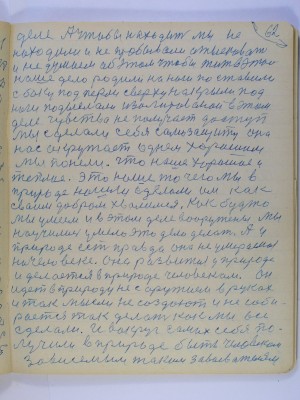 62
деле А чтобы находит мы не
находили и не пробывали отысковат
и не думаем об этом чтобы жить в этом
наше дело родили на ноги поставили
с боку подперли сверху накрыли под
ноги подослали изолированой в этом
деле чувство не получает доступ
мы сделали себя самозащиту она
нас окружает одним хорошим
мы поняли. что наше хорошое и
теплое. Это наше то чего мы в
природе нашли сделали им как
своим добром хвалимся, как будто
мы умеем и в этом деле вооружены мы
научились умело это дело делать. А у
природе ест правда она не умерала
на человеке. Она развита у природе
и делается в природе человеком. он
идет в природу не с оружием в руках
и так мысли не создают и не соби-
рается так делать как мы все
сделали. и вокруг самих себя по-
лучили в природе быть человком
зависемым таким завоевателем